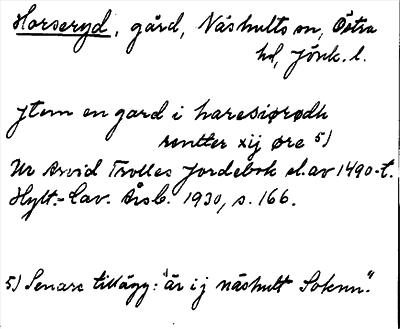 Horseryd, gård, Näshults sn, Östra
hd, Jönk. l.
Jtem en gard i haresiørødh
rentter xij øre 5)
Ur Arvid Trolles Jordebok sl. av 1490-t.
Hylt.-Cav. Årsb. 1930, s. 166.
5) Senare tillägg: "är i j näshult Soknn".